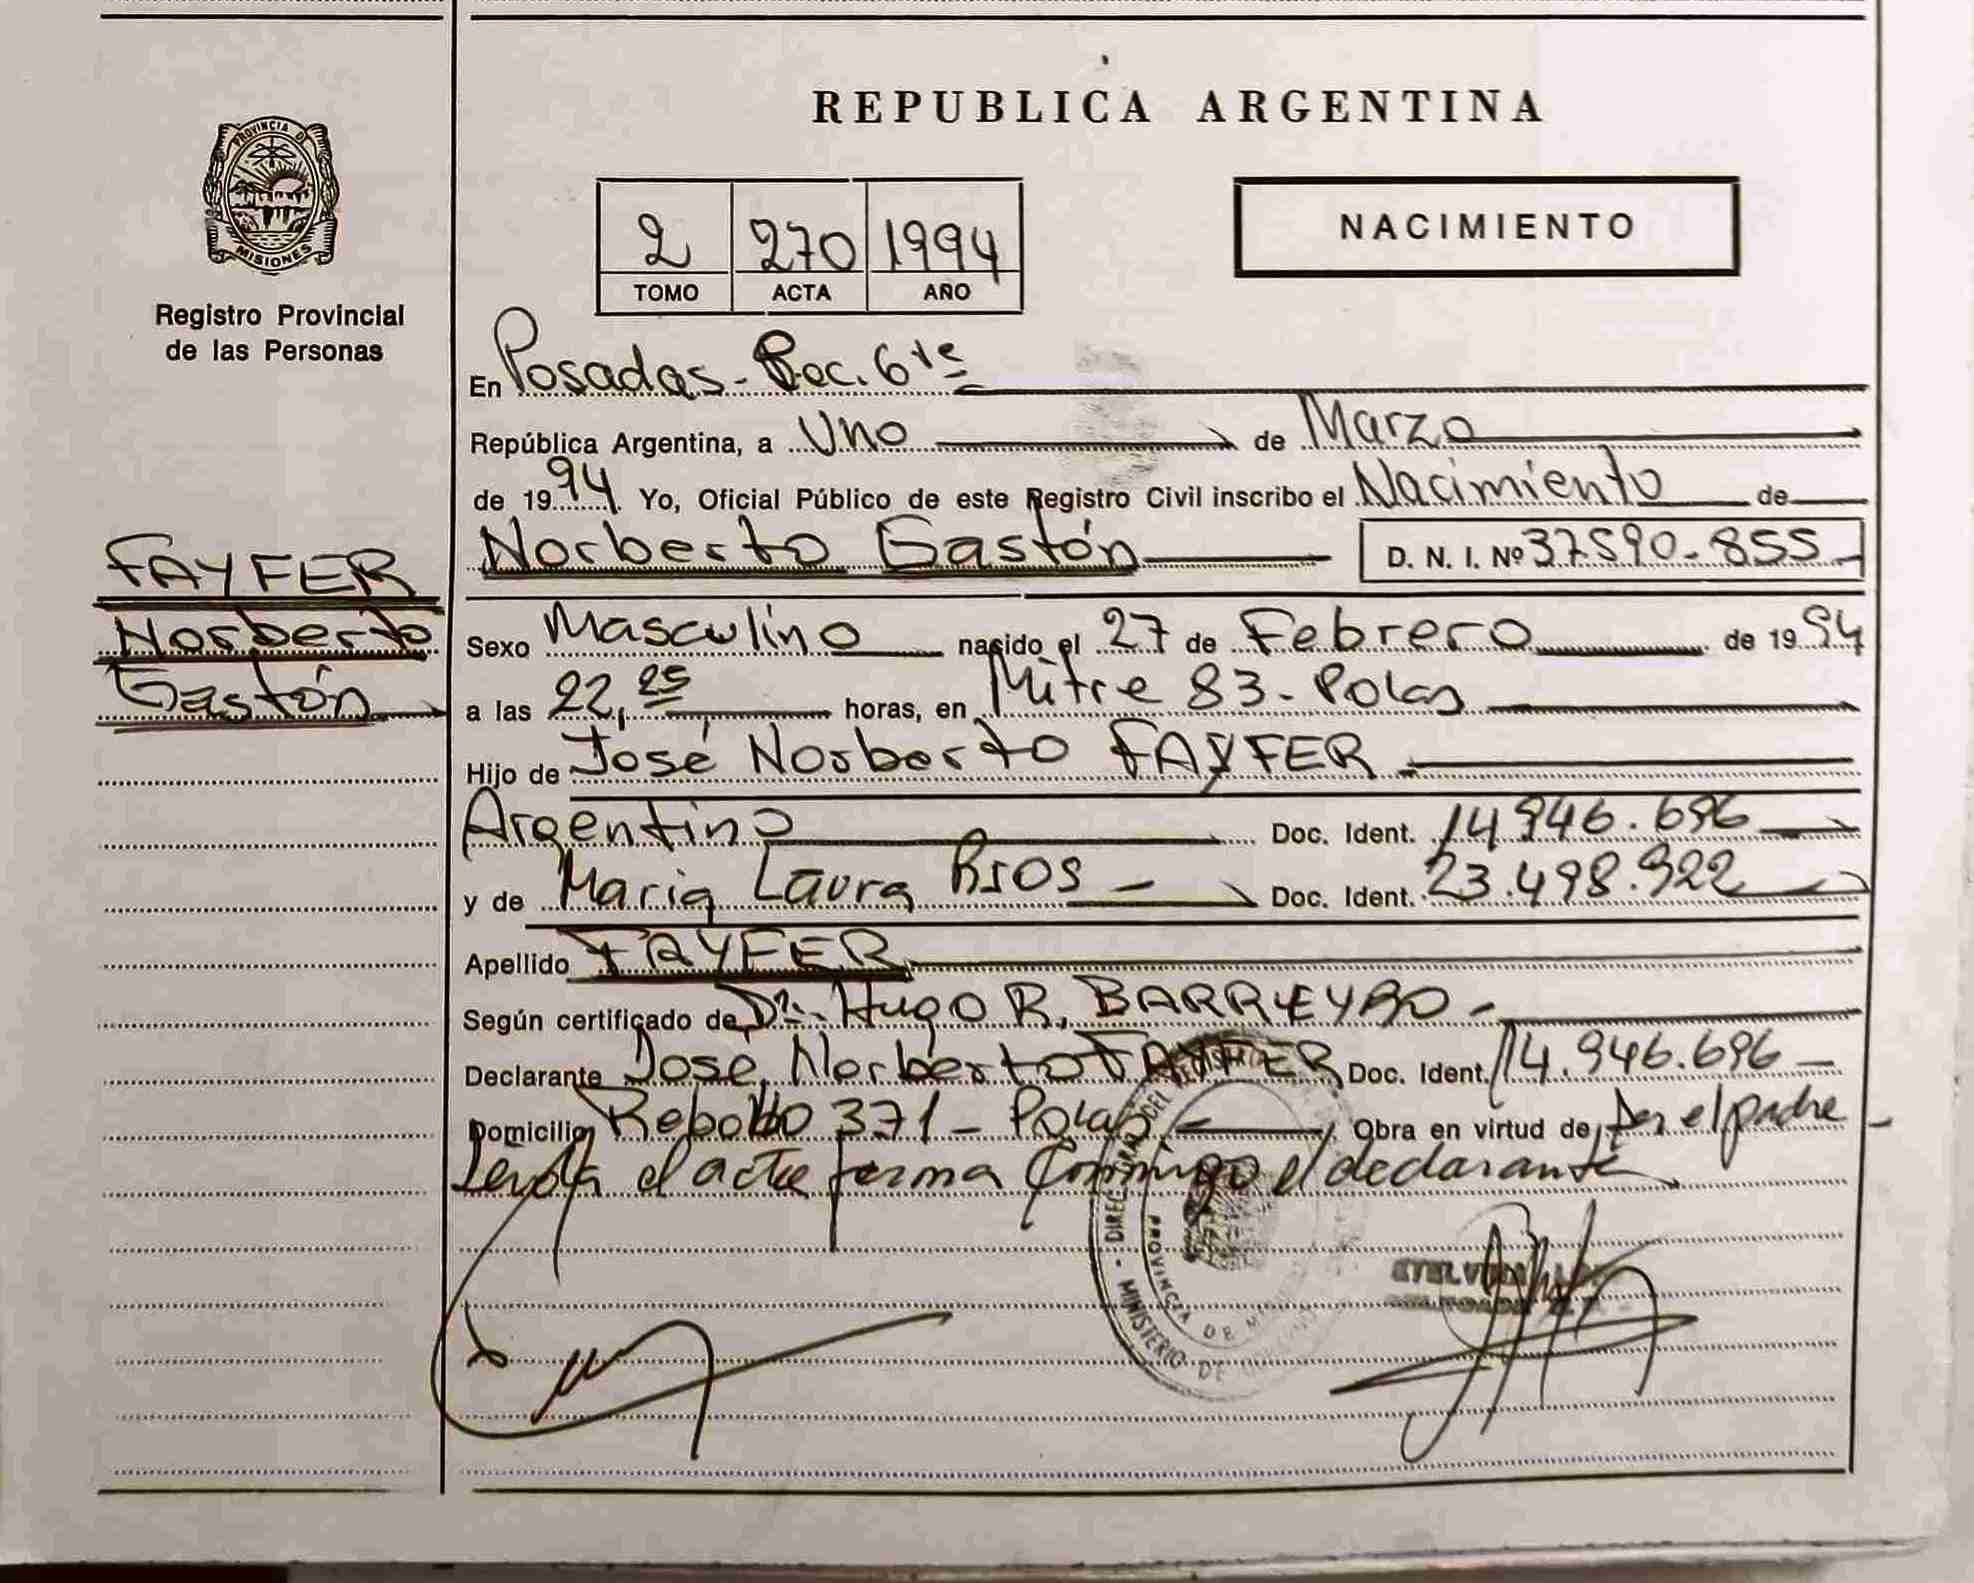 PROVINCIA DE
MISIONES
Registro Provincial
de las Personas
FAYFER
Norberto
Gastón
REPUBLICA ARGENTINA
2 270 1994
TOMO ACTA AÑO
NACIMIENTO
En Posadas - Sec. 6ta
República Argentina, a Uno de Marzo
de 1994 Yo, Oficial Público de este Registro Civil inscribo el Nacimiento de
Norberto Gastón D. N. I. Nº 37590-855
Sexo Masculino nacido el 27 de Febrero de 1994
a las 22,25 horas, en Mitre 83 - Pdas
Hijo de José Norberto FAYFER
Argentino Doc. Ident. 14946.696
y de Maria Laura RIOS Doc. Ident. 23.498.922
Apellido FAYFER
Según certificado de Dr. Hugo R. BARREYRO -
Declarante José Norberto FAYFER Doc. Ident. 14.946.696
Domicilio 371 - Pdas Obra en virtud de Ser el padre
Leida el acta firma Conmigo el declarante
MINISTERIO DE
PROVINCIA DE